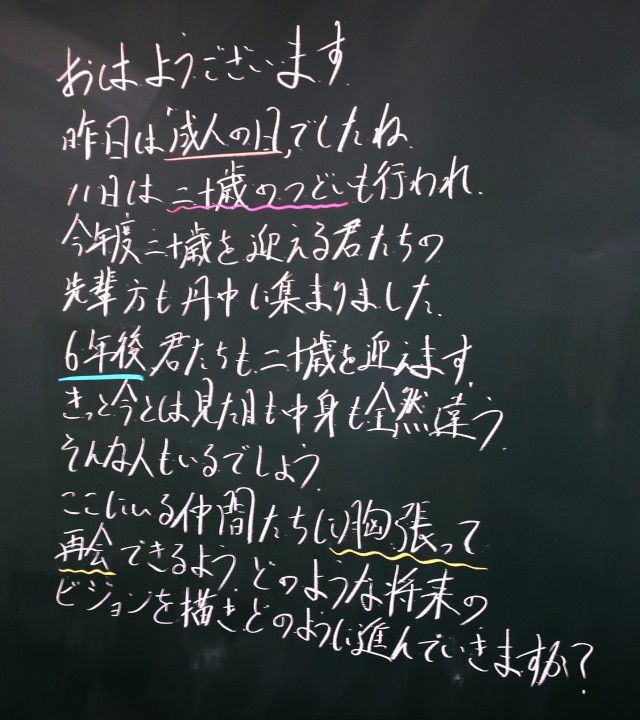 おはようございます
昨日は「成人の日」でしたね
八日は二十歳のつどいも行われ、
今年度二十歳を迎える君たちの
先輩方も丹中に集まりました。
6年後、君たちも二十歳を迎えます。
きっと今とは見た目も中身も全然違う。
そんな人もいるでしょう。
ここにいる仲間たちに胸張って
再会できるよう どのような将来の
ビジョンを描き どのように進んでいきますか?